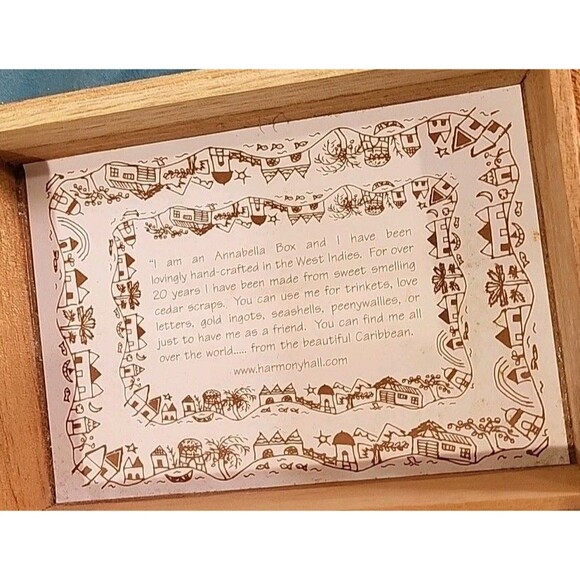 "I am an Annabella Box and I have been
lovingly hand-crafted in the West Indies. For over
20 years I have been made from sweet smelling
cedar scraps. You can use me for trinkets, love
letters, gold ingots, seashells, peenywallies, or
just to have me as a friend. You can find me all
over the world..... from the beautiful Caribbean.
www.harmonyhall.com